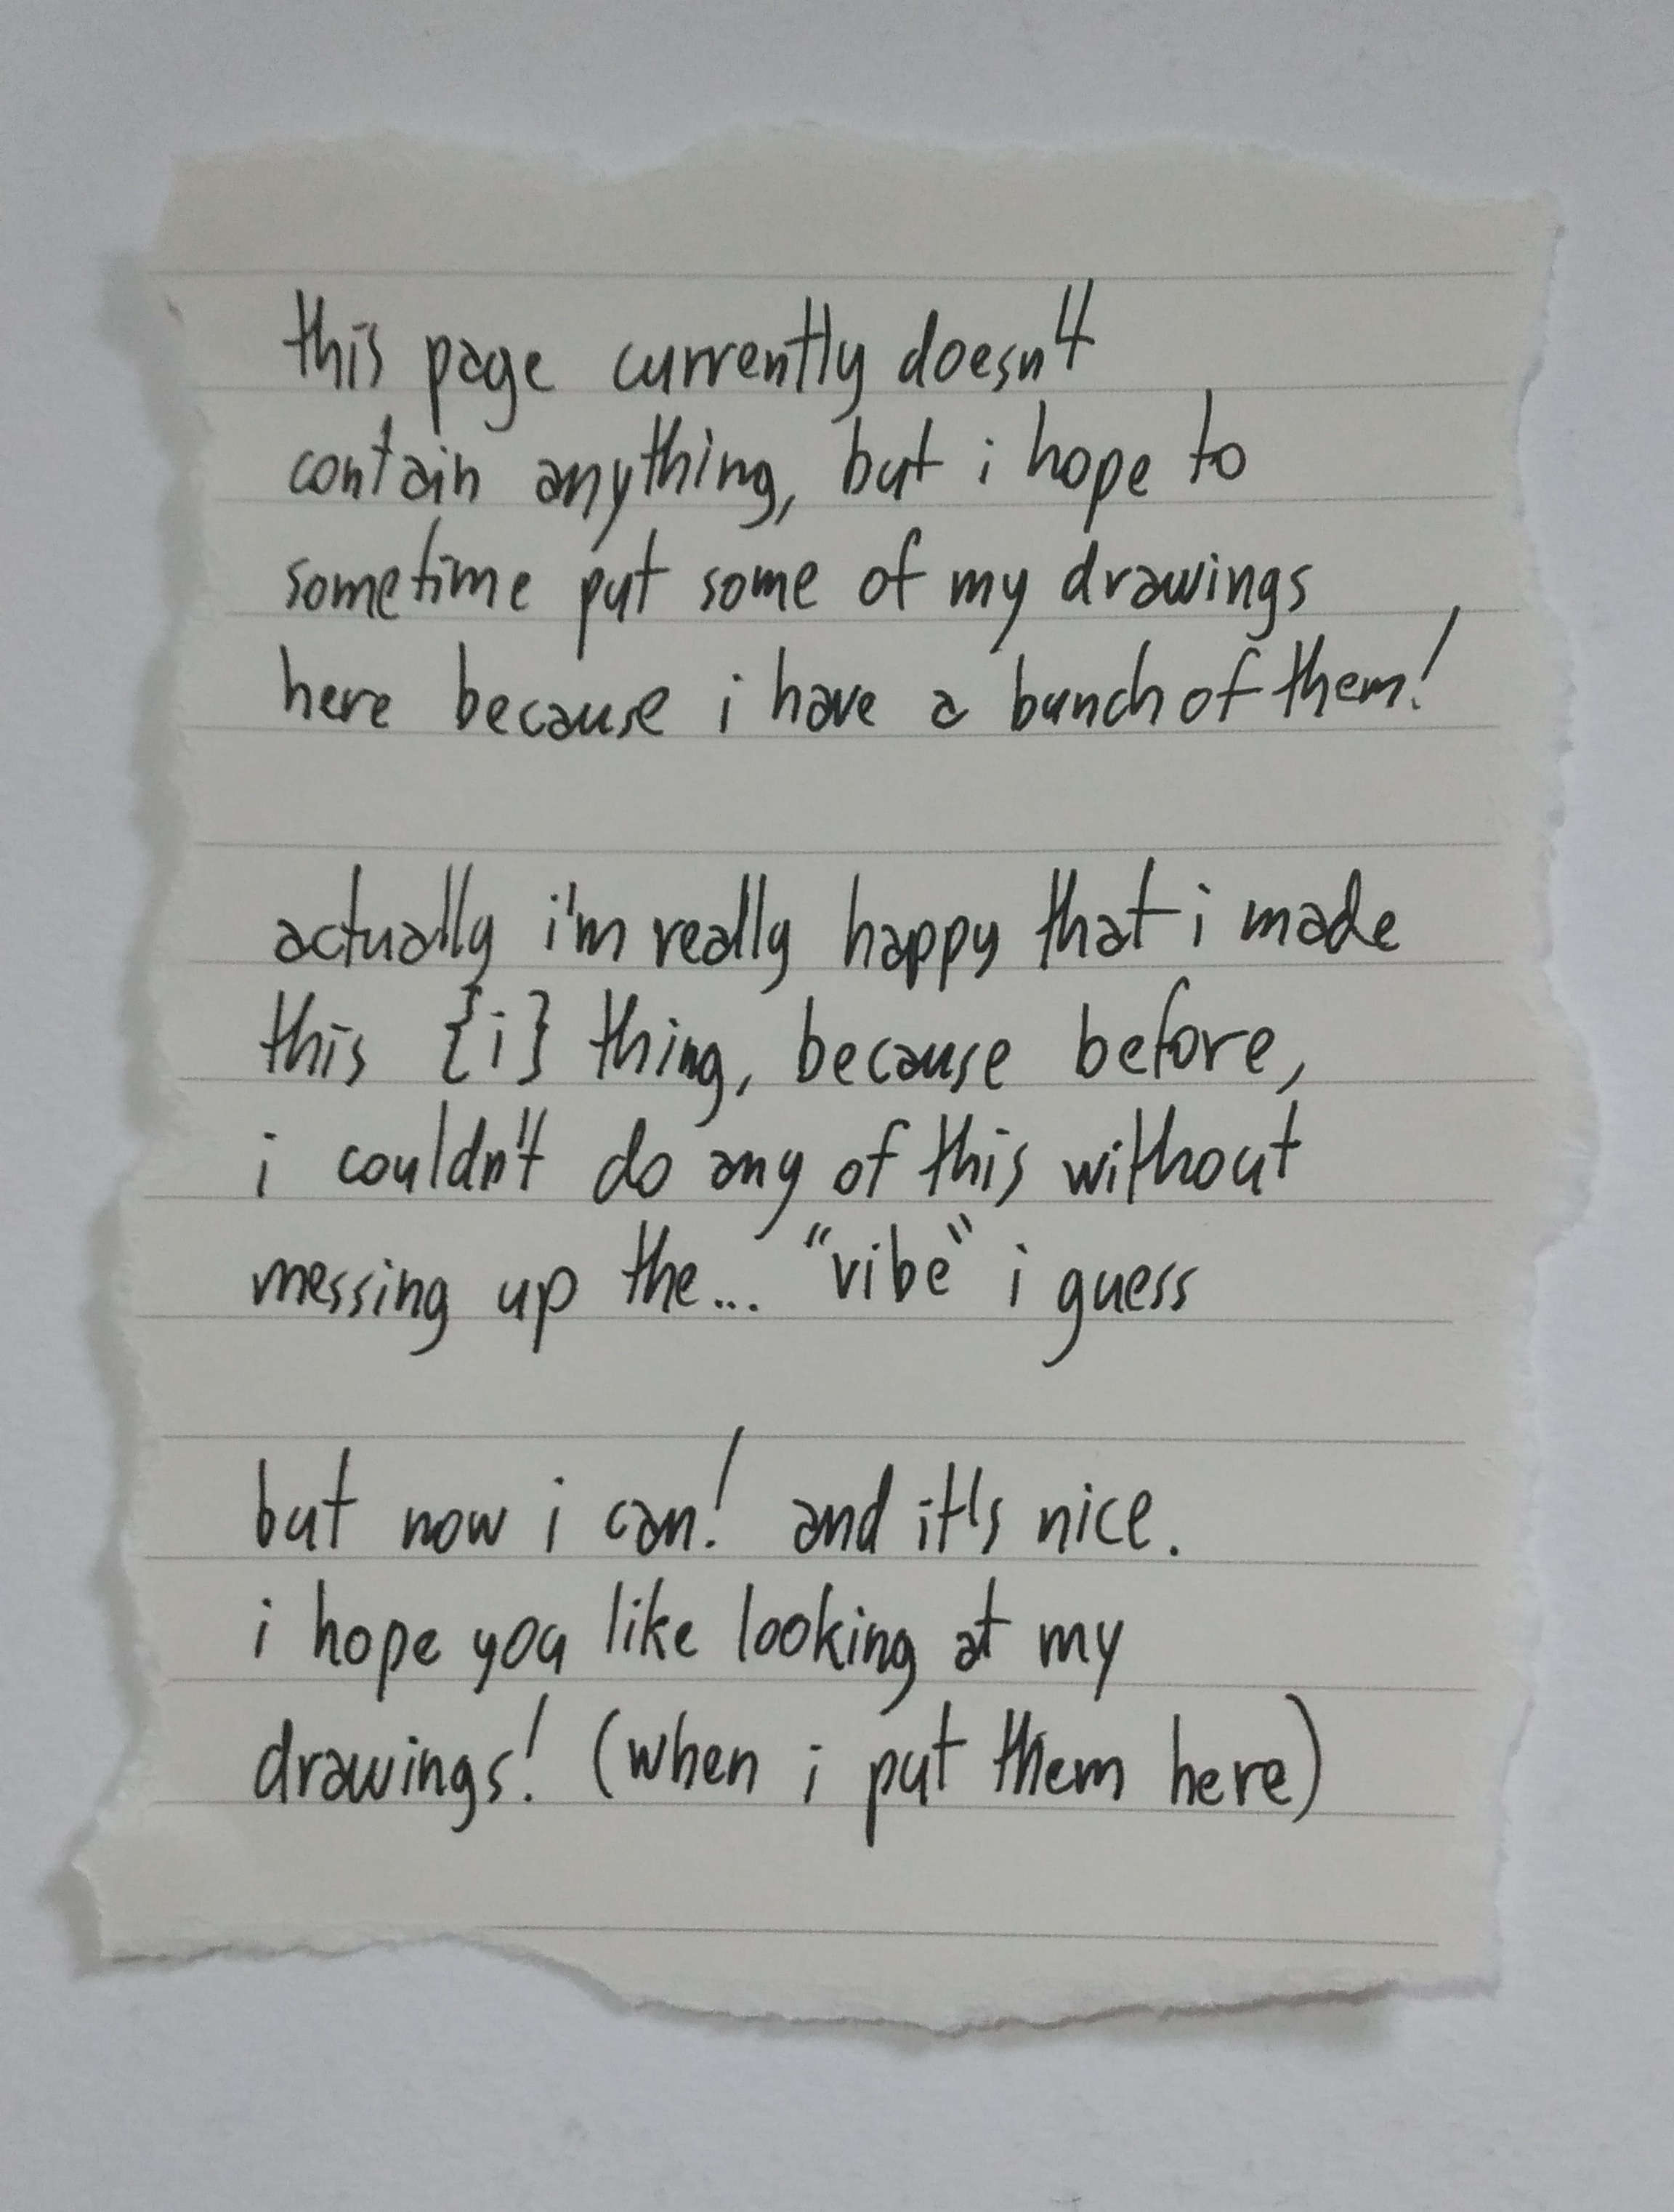 this page currently doesn't
contain anything, but i hope to
sometime put some of my drawings
here because i have a bunch of them!
actually i'm really happy that i made
this {i} thing, because before,
i couldn't do any of this without
messing up the... "vibe" i guess
but now i can! and it's nice.
i hope you like looking at my
drawings! (when i put them here)